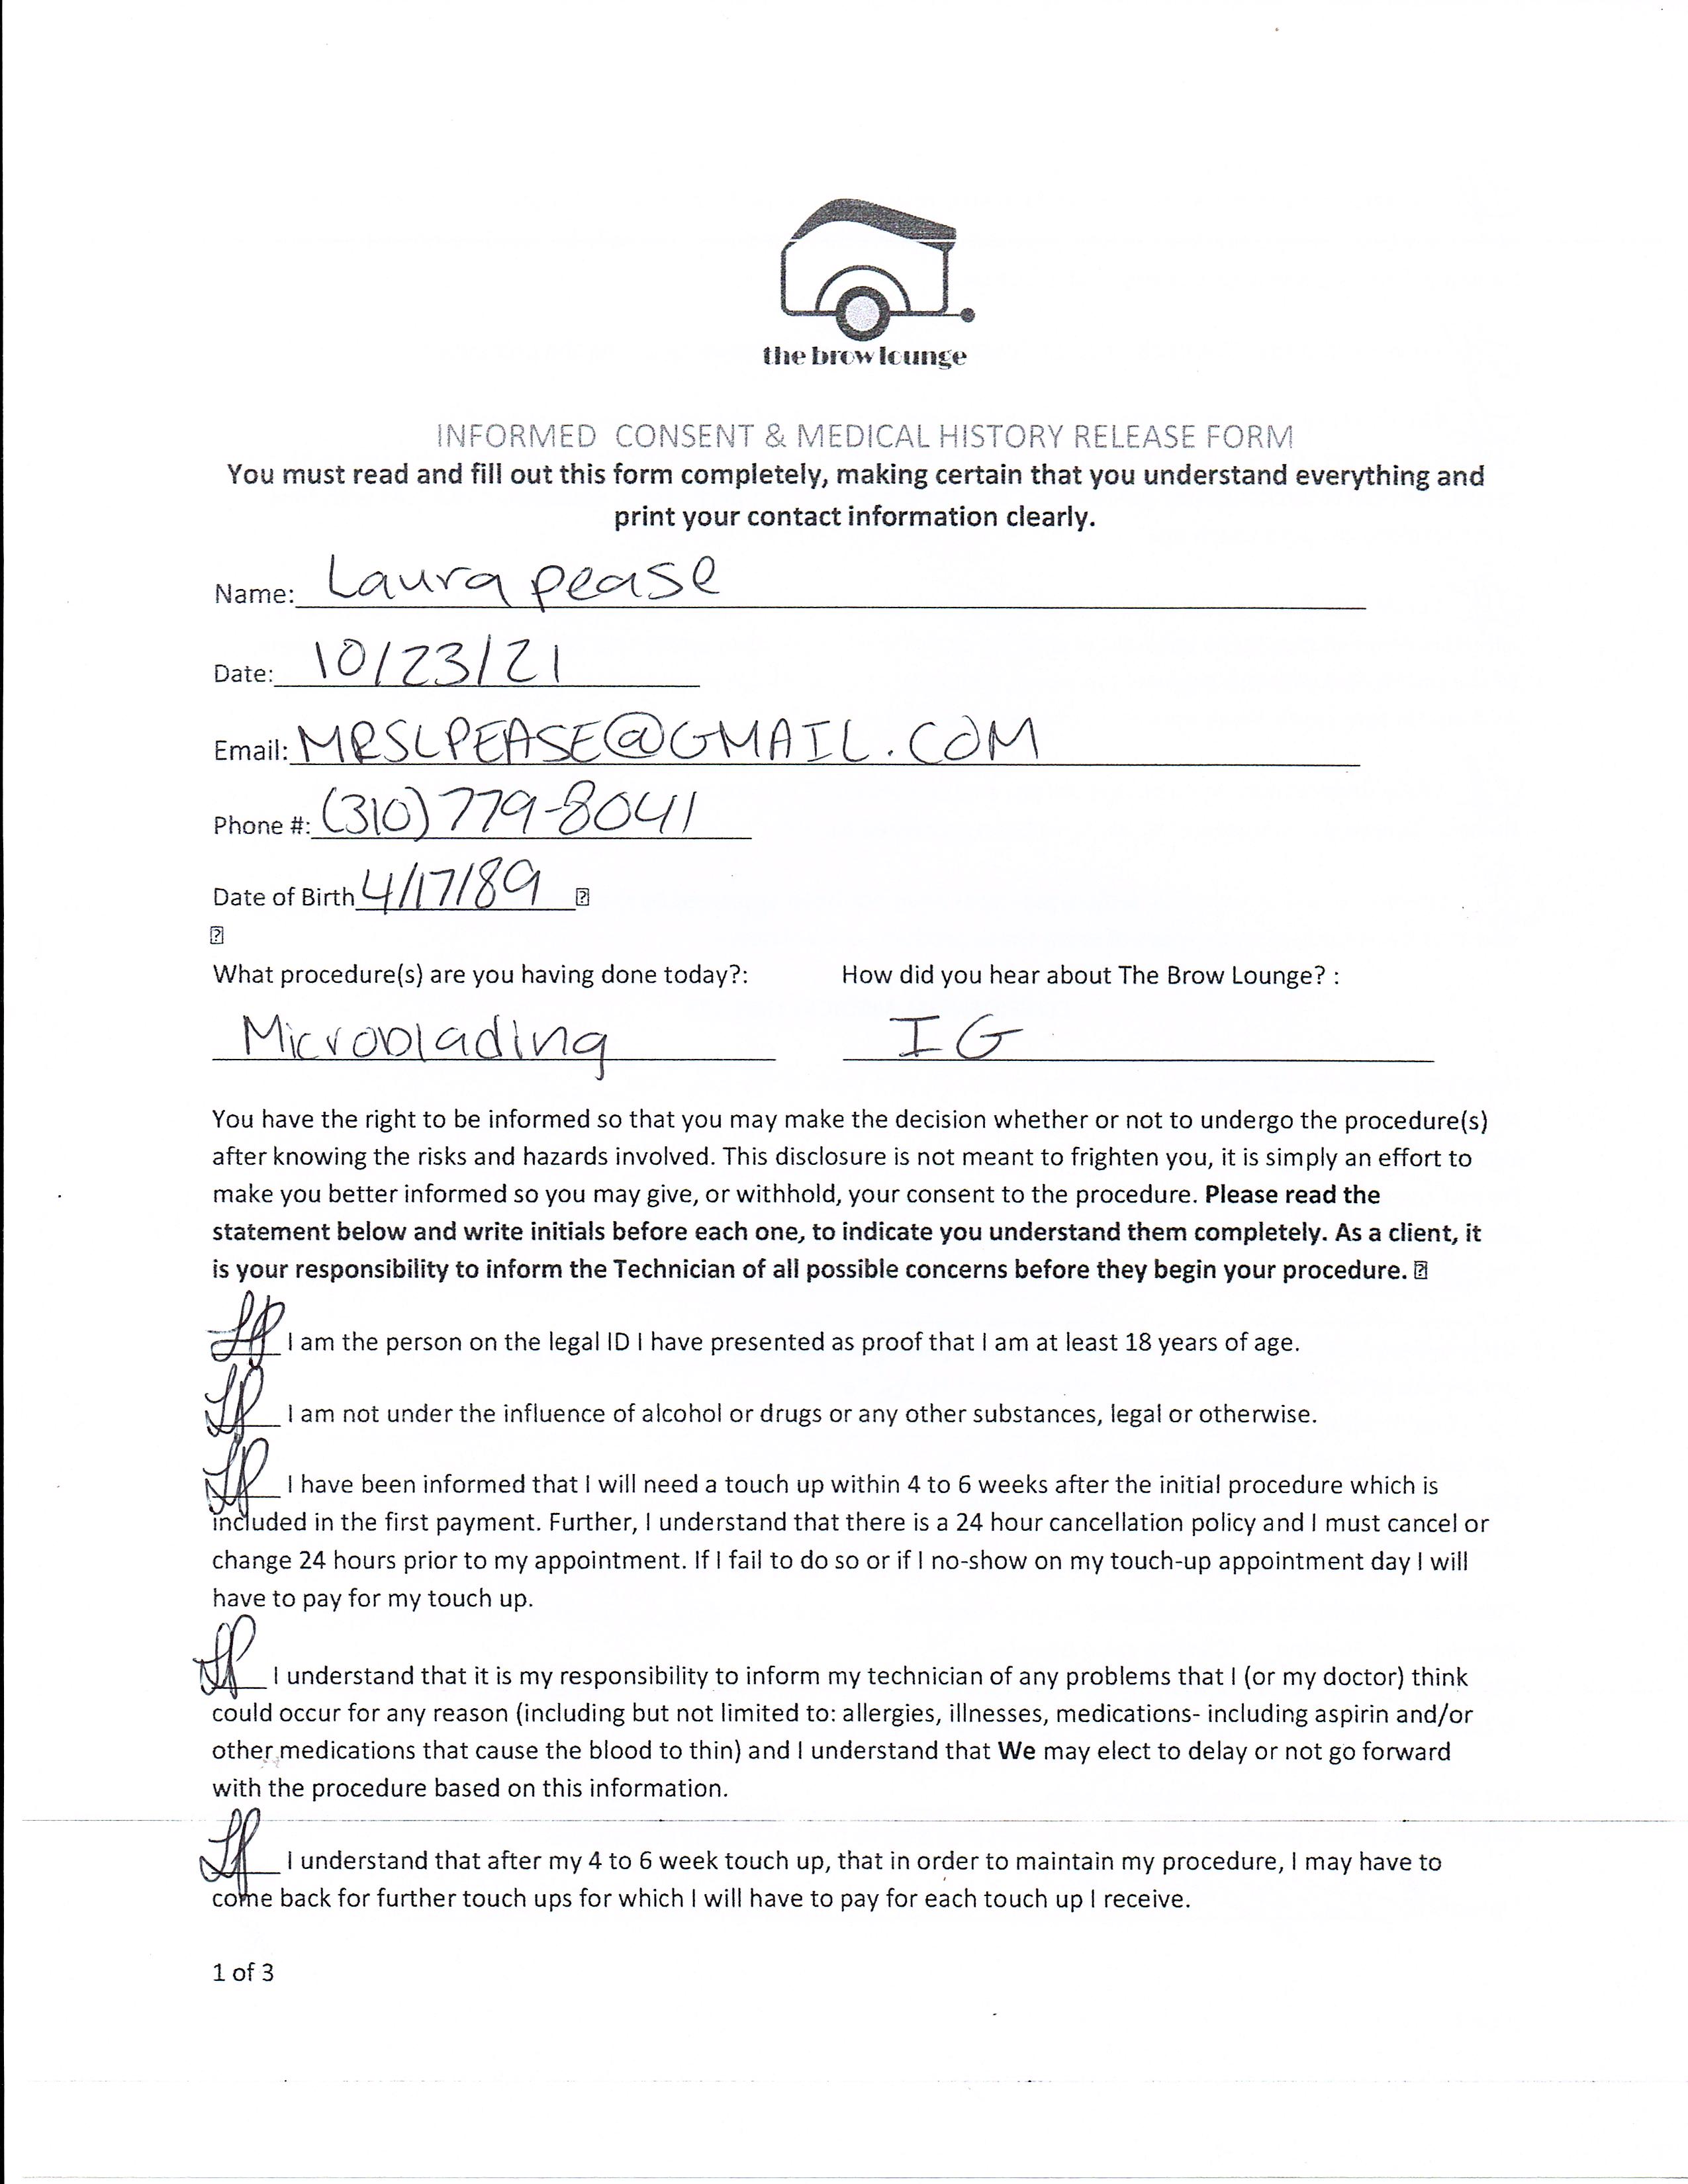 the brow lounge
INFORMED CONSENT & MEDICAL HISTORY RELEASE FORM
You must read and fill out this form completely, making certain that you understand everything and
print your contact information clearly.
Name: Laura pease
Date: 10/23/21
Email: MRSLPEASE@GMAIL.COM
Phone #: (310) 779-8041
Date of Birth 4/17/89
What procedure(s) are you having done today?: How did you hear about The Brow Lounge? :
Microblading IG
You have the right to be informed so that you may make the decision whether or not to undergo the procedure(s)
after knowing the risks and hazards involved. This disclosure is not meant to frighten you, it is simply an effort to
make you better informed so you may give, or withhold, your consent to the procedure. Please read the
statement below and write initials before each one, to indicate you understand them completely. As a client, it
is your responsibility to inform the Technician of all possible concerns before they begin your procedure.
LP I am the person on the legal ID I have presented as proof that I am at least 18 years of age.
LP I am not under the influence of alcohol or drugs or any other substances, legal or otherwise.
LP I have been informed that I will need a touch up within 4 to 6 weeks after the initial procedure which is
included in the first payment. Further, I understand that there is a 24 hour cancellation policy and I must cancel or
change 24 hours prior to my appointment. If I fail to do so or if I no-show on my touch-up appointment day I will
have to pay for my touch up.
LP I understand that it is my responsibility to inform my technician of any problems that I (or my doctor) think
could occur for any reason (including but not limited to: allergies, illnesses, medications- including aspirin and/or
other medications that cause the blood to thin) and I understand that We may elect to delay or not go forward
with the procedure based on this information.
LP I understand that after my 4 to 6 week touch up, that in order to maintain my procedure, I may have to
come back for further touch ups for which I will have to pay for each touch up I receive.
1 of 3